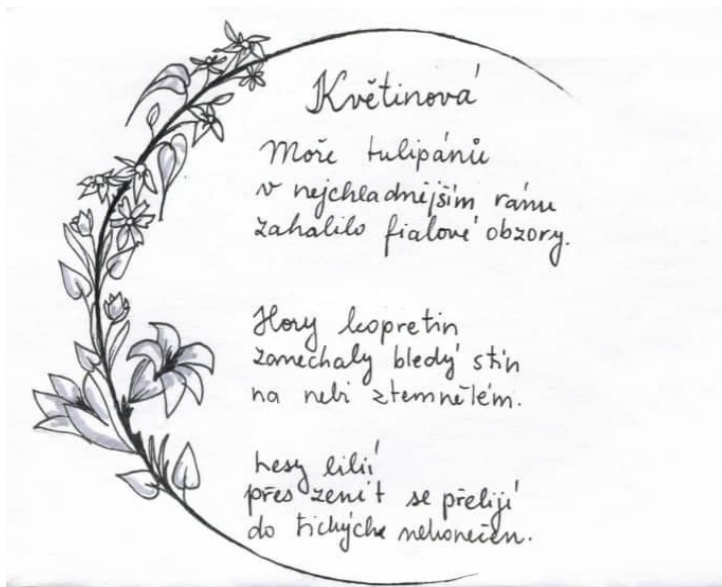 Květinová
Moře tulipánů
v nejchladnějším ránu
zahalilo fialové obzory.
Hory kopretin
zanechaly bledý stín
na nebi ztemnělém.
Lesy lilií
přes zenit se přelijí
do tichých nekonečen.